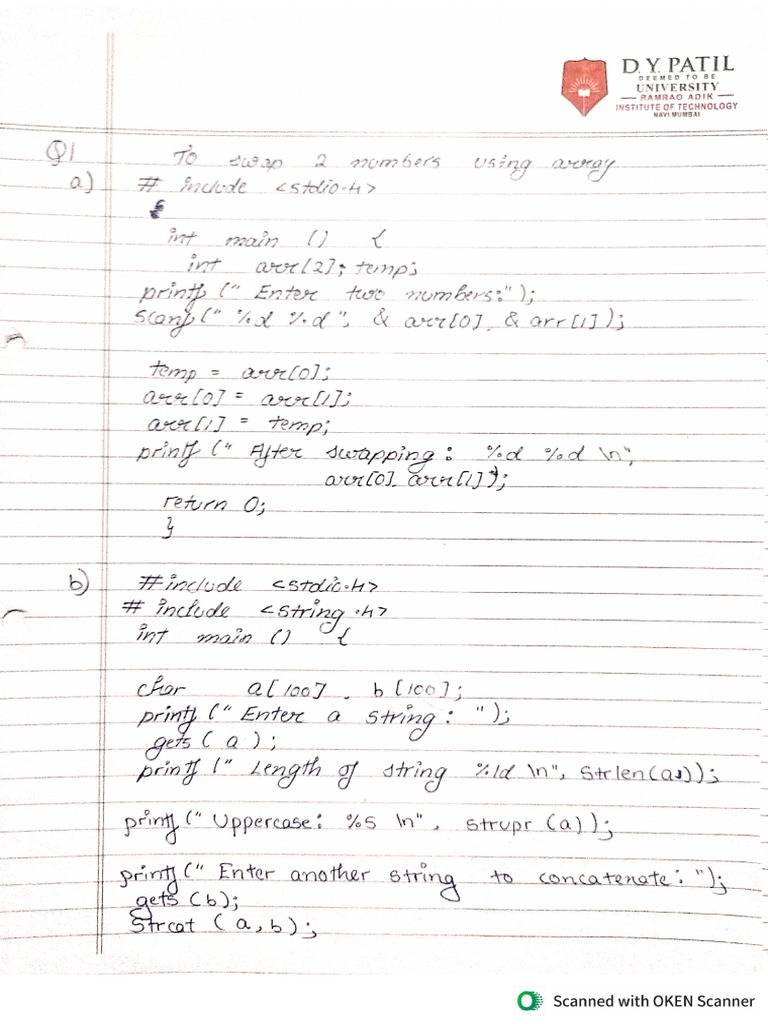 D. Y. PATIL
DEEMED TO BE
UNIVERSITY
— RAMRAO ADIK —
INSTITUTE OF TECHNOLOGY
NAVI MUMBAI
Q1 To swap 2 numbers using array
a) # include <stdio.h>
{
int main () {
int arr[2]; temp;
printf (" Enter two numbers:");
scanf (" %d %d", & arr[0], & arr[1]);
temp = arr[0];
arr[0] = arr[1];
arr[1] = temp;
printf (" After swapping : %d %d \n",
arr[0], arr[1]);
return 0;
}
b) #include <stdio.h>
# include <string.h>
int main () {
char a[100], b[100];
printf (" Enter a string : ");
gets ( a );
printf (" Length of string %ld \n", strlen(a));
printf (" Uppercase: %s \n", strupr (a));
printf (" Enter another string to concatenate: ");
gets (b);
Strcat ( a, b );
Scanned with OKEN Scanner